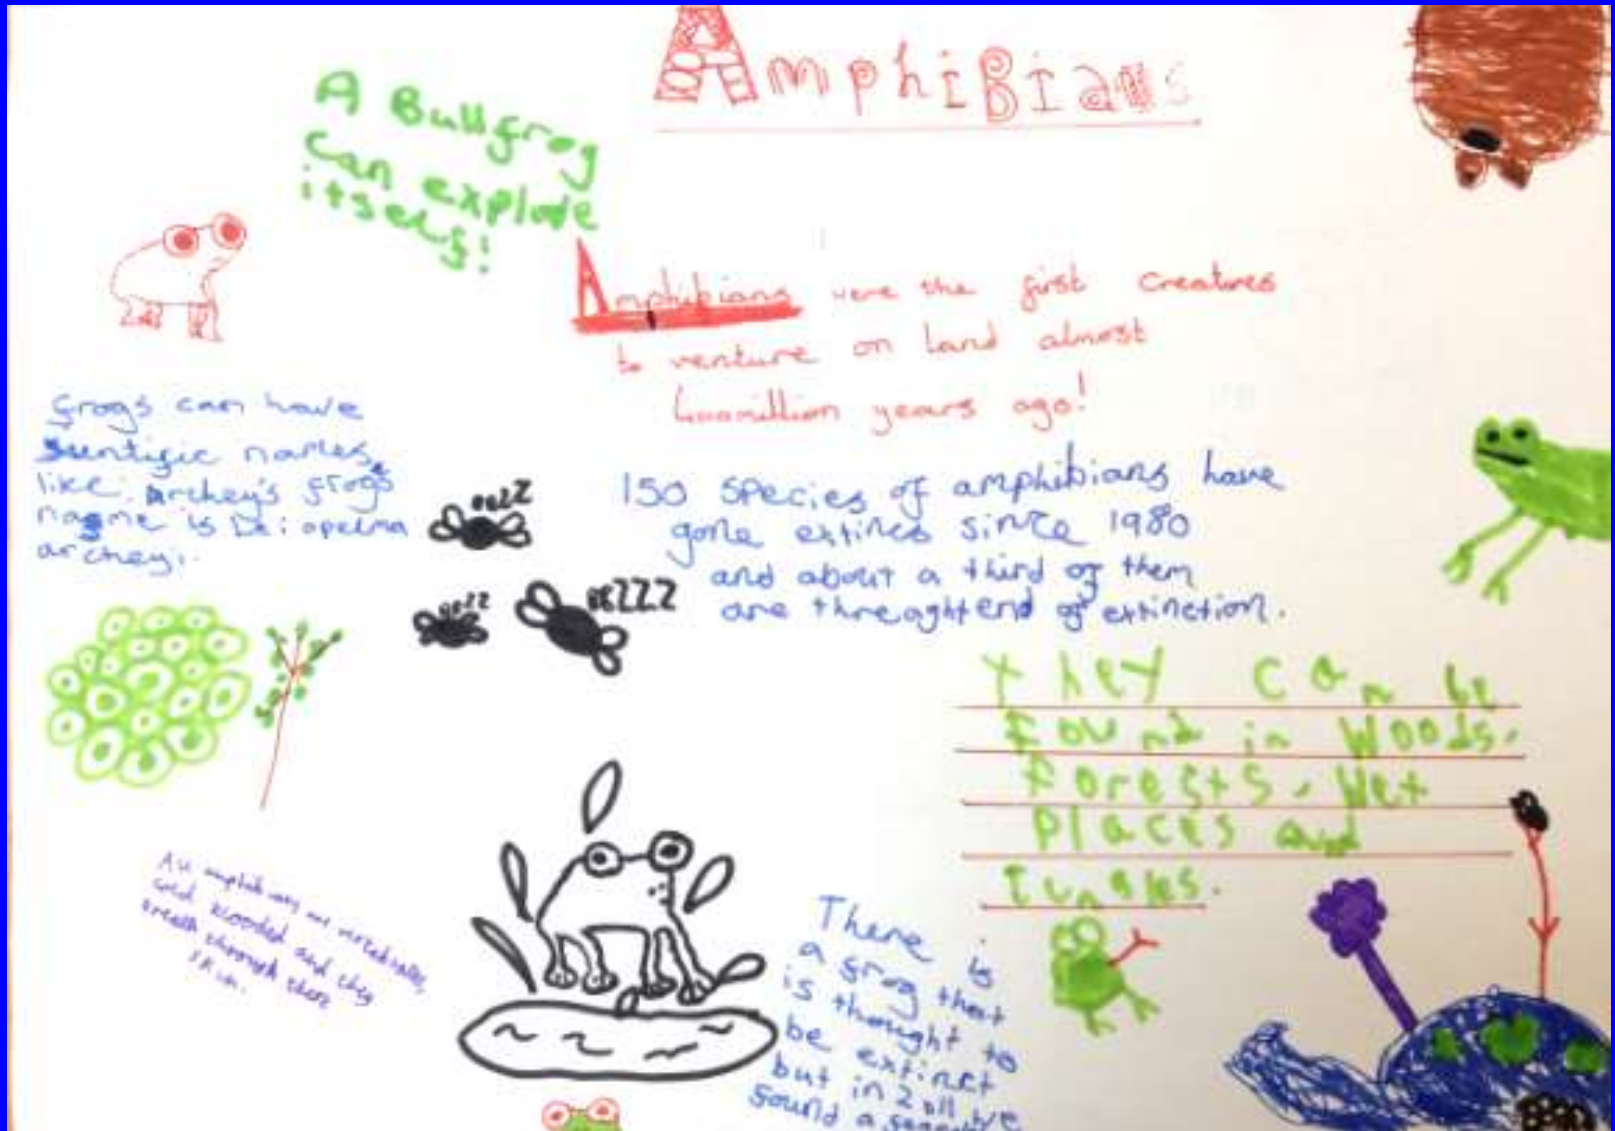 AmphiBians
A Bullfrog
can explode
itself!
Amphibians were the first creatures
to venture on land almost
400million years ago!
frogs can have
sientific names,
like archey's frogs
name is Leiopelma
archeyi.
ZZ
150 species of amphibians have
gone extinct since 1980
and about a third of them
are threaghtend of extinction.
ZZ
ZZZ
They can be
found in Woods.
Forests. Wet
places and
Jungles.
All amphibians are vertebrates,
cold blooded and they
breath through there
skin.
There is
a frog that
is thought to
be extinct
but in 2011 we
found a